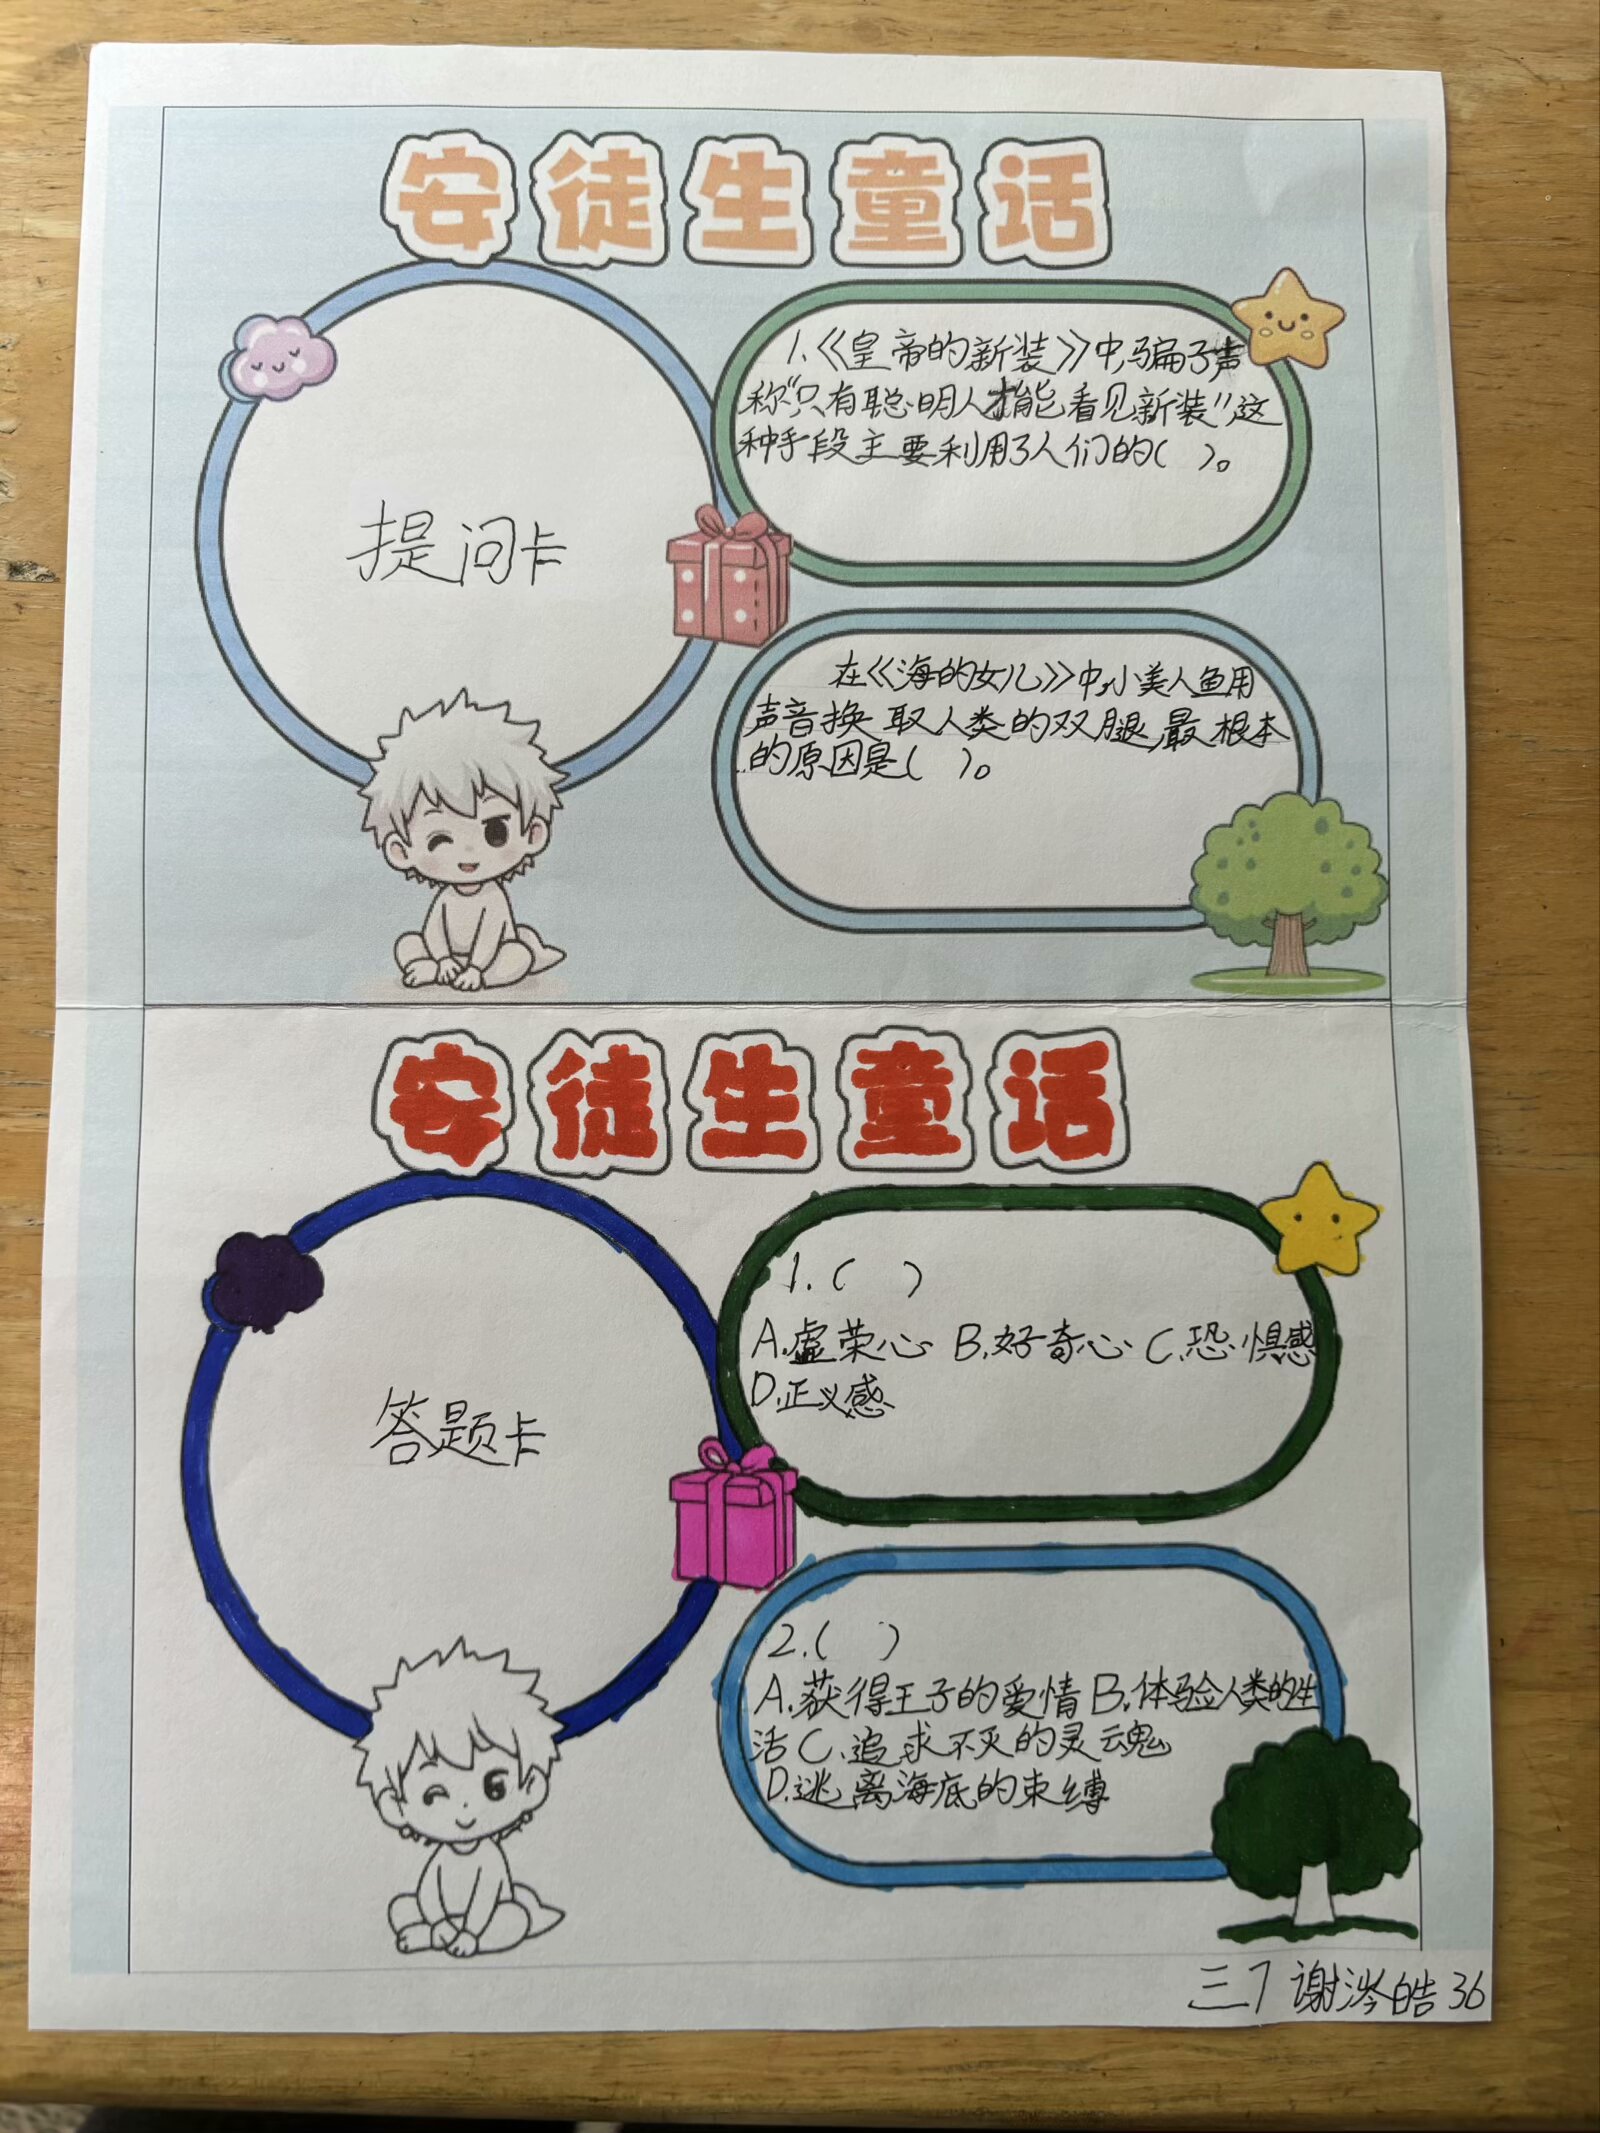 安徒生童话
提问卡
1.《皇帝的新装》中,骗子声
称“只有聪明人才能看见新装”这
种手段主要利用了人们的( )。
在《海的女儿》中,小美人鱼用
声音换取人类的双腿,最根本
的原因是( )。
安徒生童话
答题卡
1.( )
A.虚荣心 B.好奇心 C.恐惧感
D.正义感
2.( )
A.获得王子的爱情 B.体验人类的生
活 C.追求不灭的灵魂
D.逃离海底的束缚
三7 谢涔皓 36